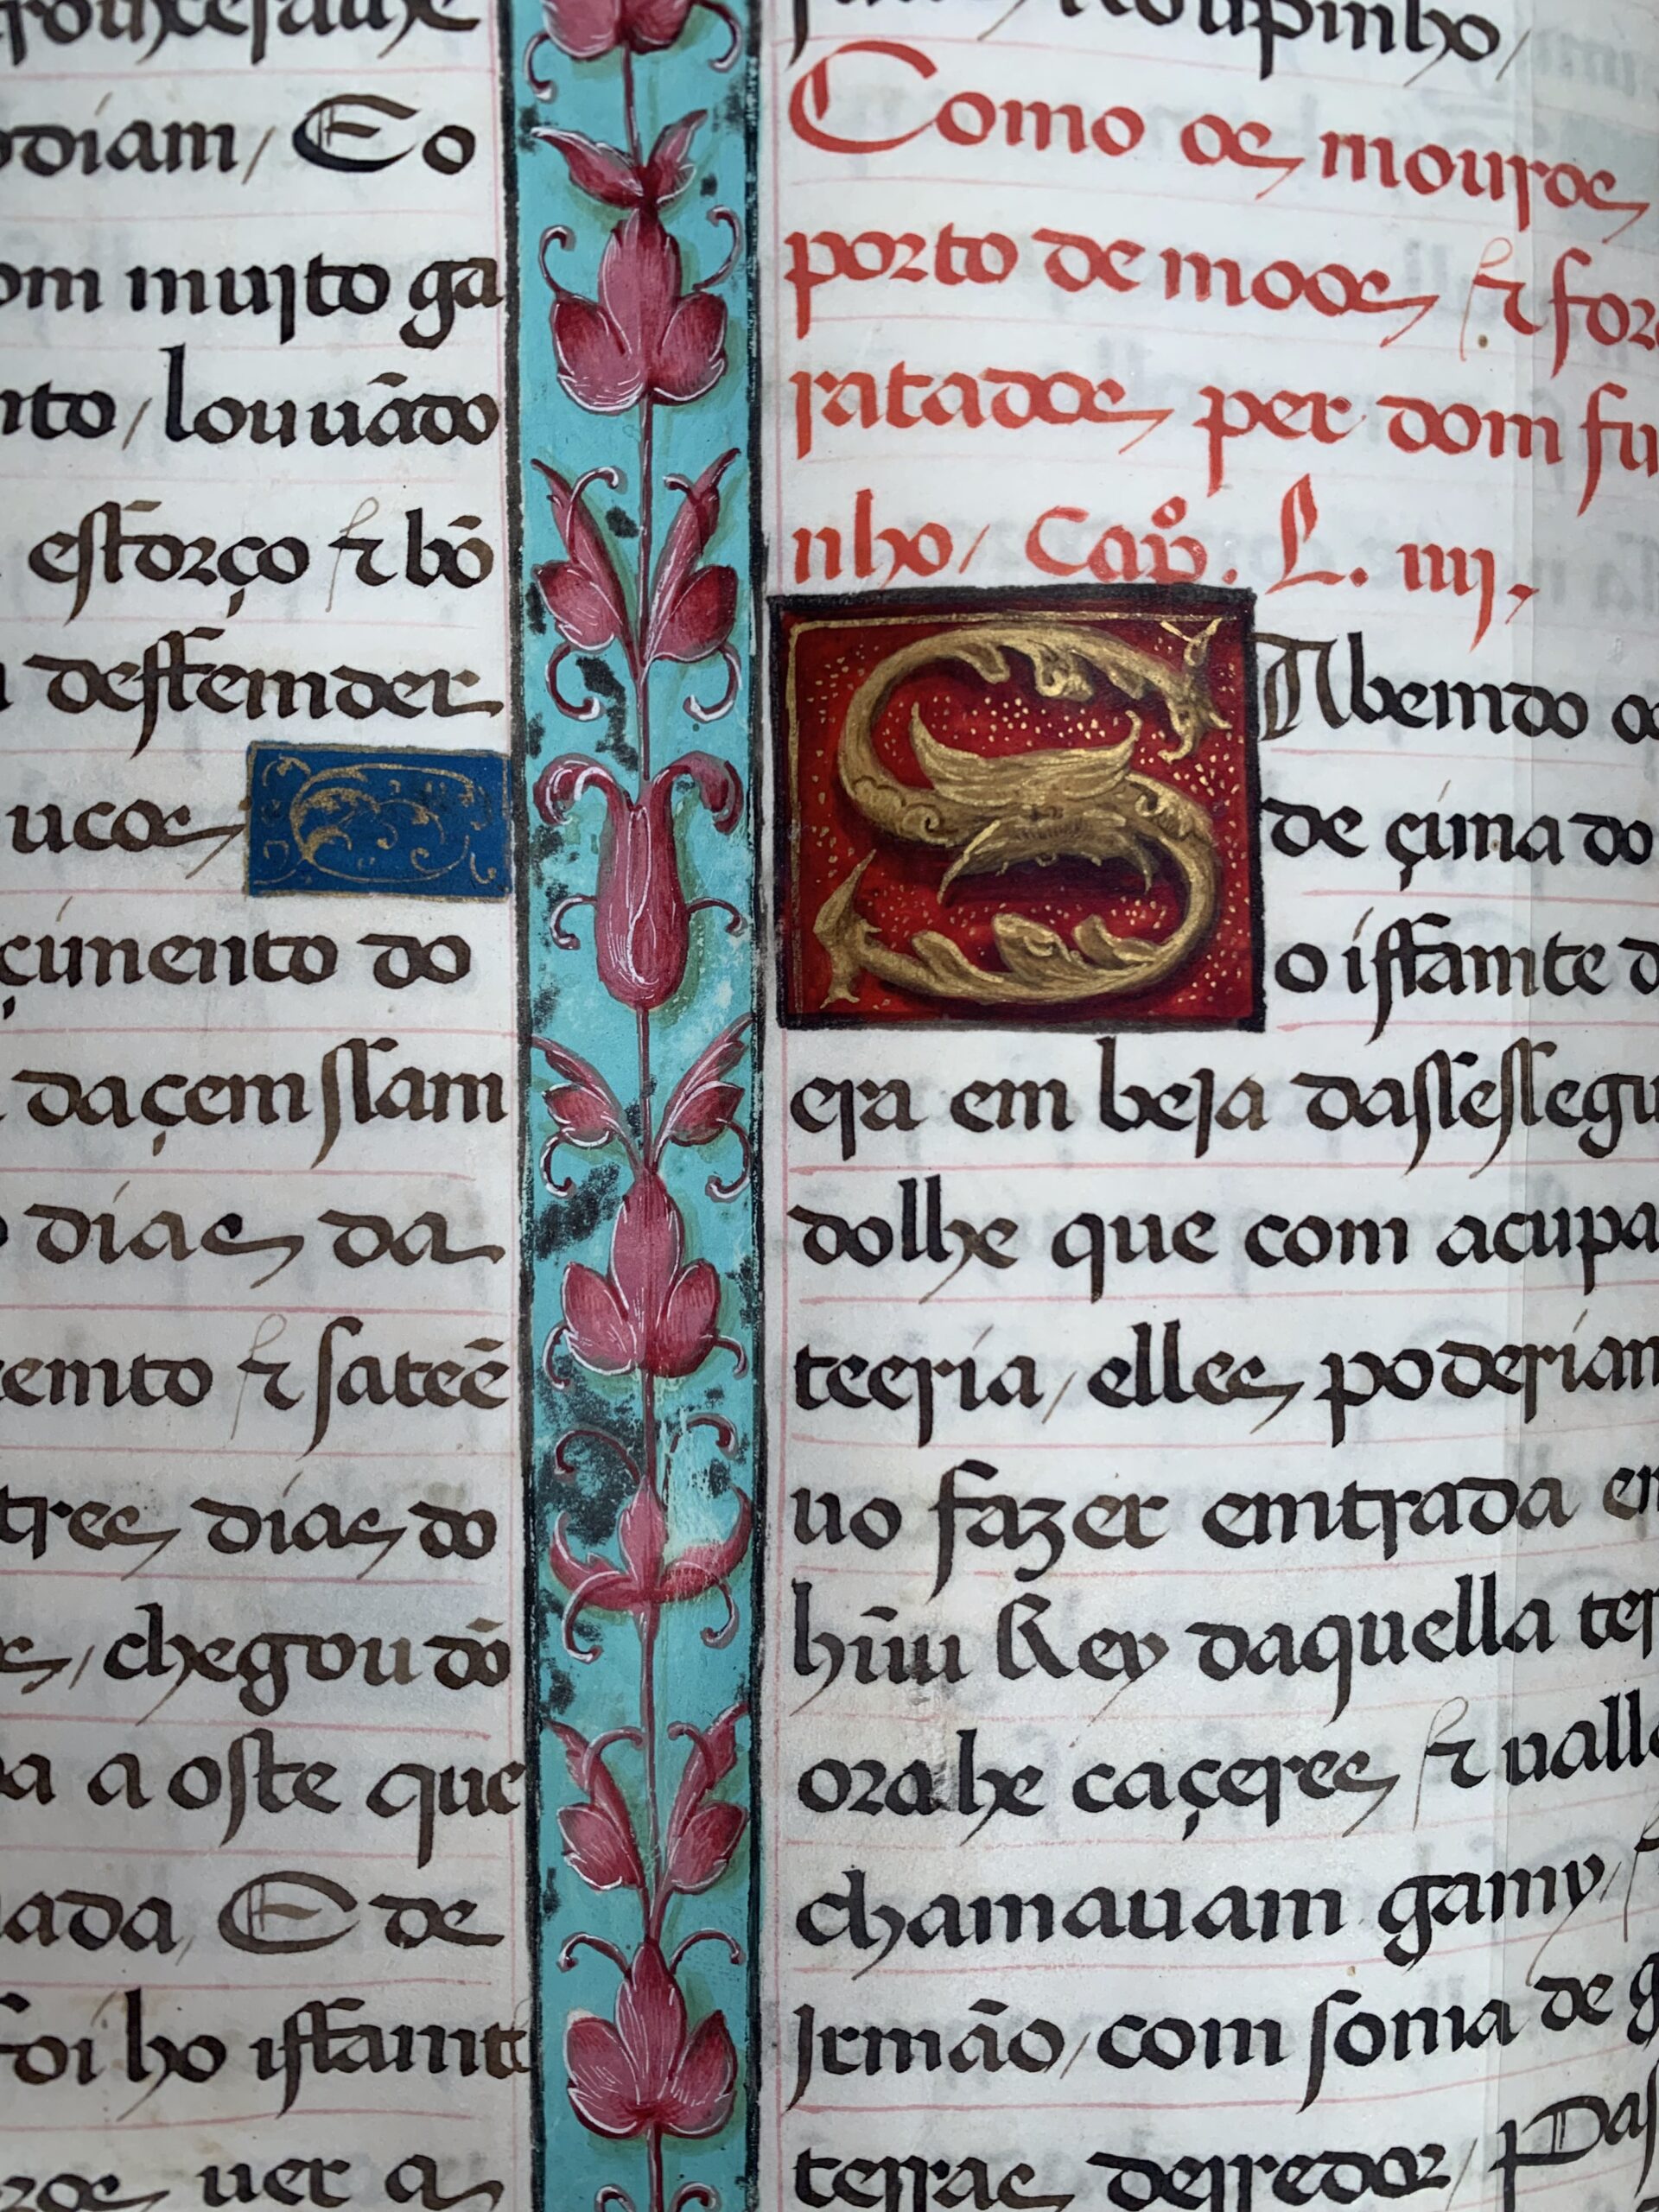 odiam / E o
om muito ga
nto / louuādo
esforço & bō
deffemder
ucos
çimento do
daçemssam
dias da
emto & sateē
tres dias do
chegou dō
a oste que
ada, E de
foi ho iffamt
uer as
Como os mouros
porto de moos & for
ratados per dom fu
nho / Capº. L. iiij.
SAbemdo os
de çima do
o iffamte d
era em beja dassessegu
dolhe que com acupa
teeria / elles poderiam
uo fazer emtrada em
hūu Rey daquella ter
ora he caçeres & ualle
chamauam gamy /
Jrmão / com soma de g
terras derredor / Pas